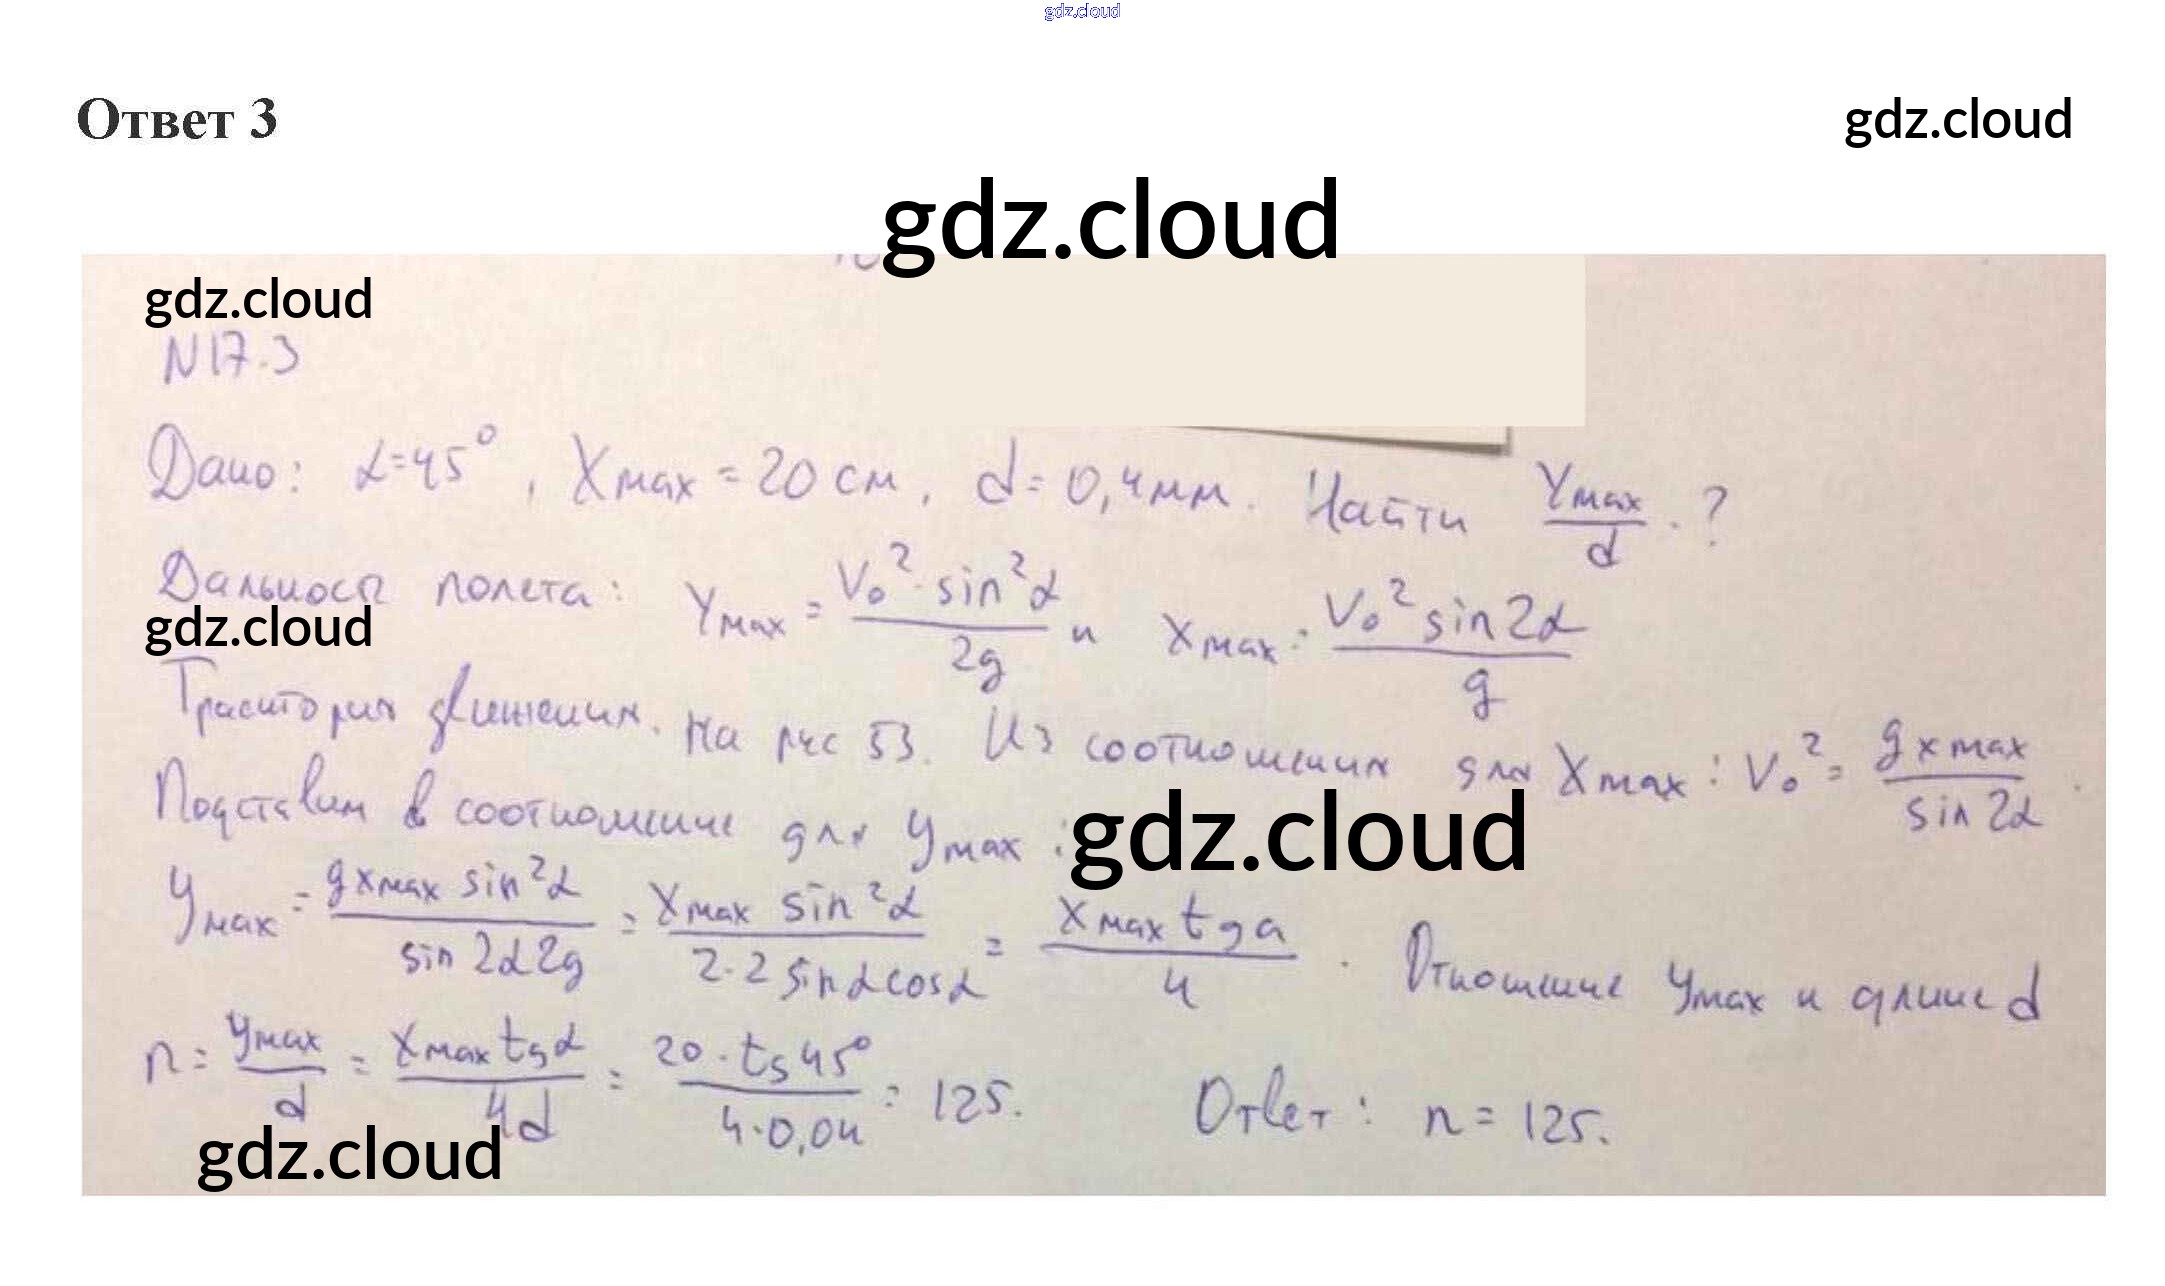 gdz.cloud
Ответ 3
gdz.cloud
gdz.cloud
gdz.cloud
N17.3
Дано: α=45°, Xmax = 20 см, d = 0,4мм. Найти Ymax/d. ?
Дальность полета: Ymax = V₀²·sin²α/2g и Xmax = V₀² sin2α/g
gdz.cloud
Траектория движения. на рис 53. Из соотношения для Xmax: V₀² = g xmax/sin 2α.
Подставим в соотношение для Ymax:
gdz.cloud
Ymax = g xmax sin²α/sin 2α 2g = Xmax sin²α/2·2 sinα cosα = Xmax tg a/4. Отношение Ymax и длине d
n = Ymax/d = Xmax tgα/4d = 20·tg45°/4·0,04 = 125. Ответ: n = 125.
gdz.cloud